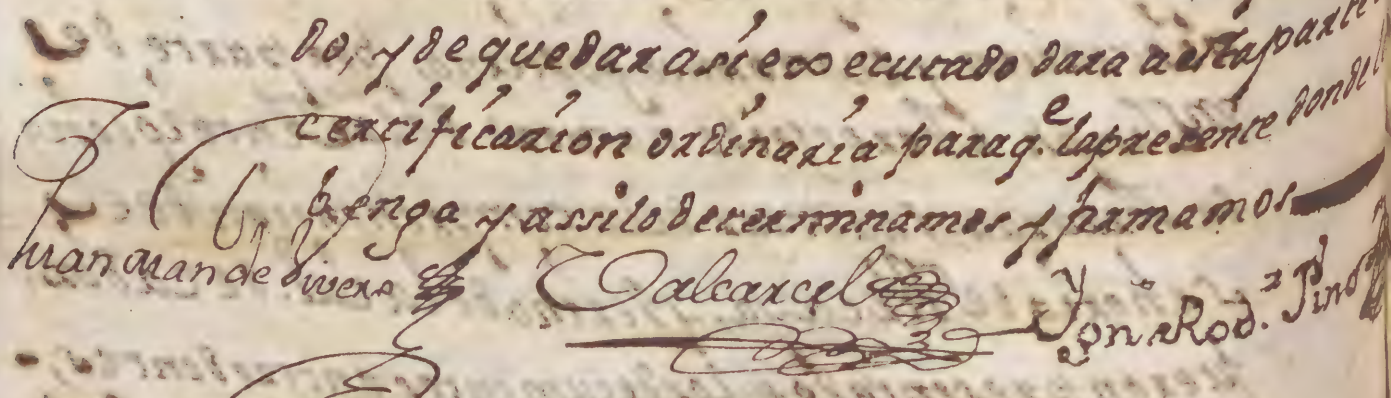 do, y de quedar asi executado dara a esta parte
certificazion ordinaria para q.e la presente donde le
benga y assi lo determinamos y firmamos
Juan de Vivero Valcarcel Ygn.o Rod.z Pino